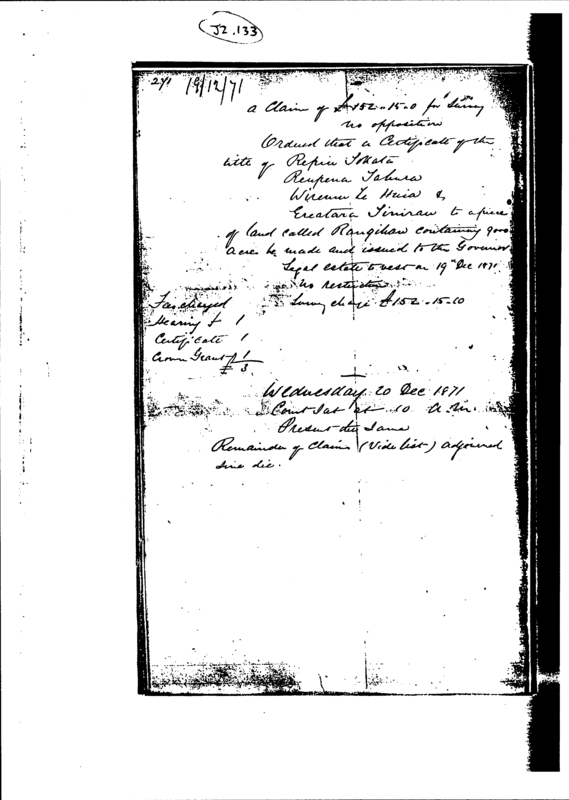 J2.133
271 19/12/71
a Claim of £152-15-0 for Survey
no opposition
Ordered that a Certificate of the
title of
Wiremu Te &
to a piece
of land called containing 900
acres be made and issued to the Governor
Legal estate to vest on 19th Dec 1871
No restriction
Fees charged Survey charge £152-15-0
Hearing £ 1
Certificate 1
Crown Grant 1
£ 3
Wednesday 20 Dec 1871
Court sat at 10 A.M.
Present the Same
Remainder of Claims (Vide list) adjourned
sine die.